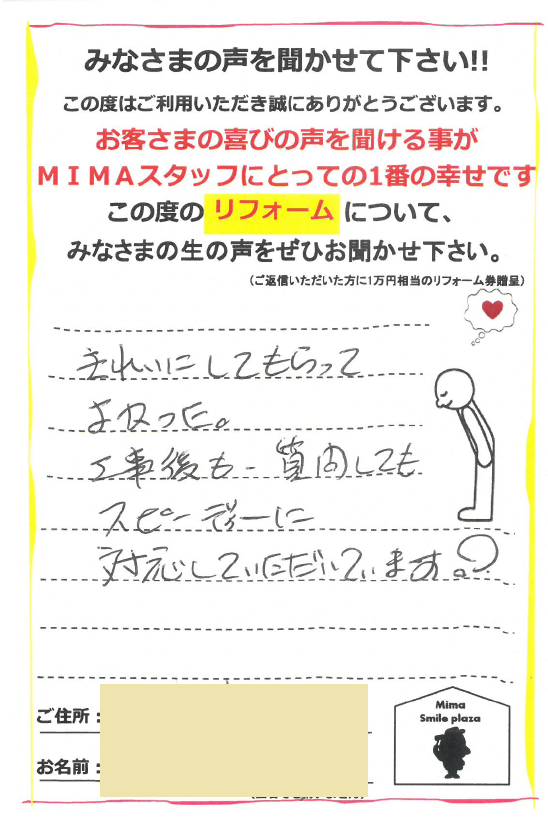 みなさまの声を聞かせて下さい!!
この度はご利用いただき誠にありがとうございます。
お客さまの喜びの声を聞ける事が
ＭＩＭＡスタッフにとっての1番の幸せです
この度のリフォームについて、
みなさまの生の声をぜひお聞かせ下さい。
（ご返信いただいた方に1万円相当のリフォーム券贈呈）
きれいにしてもらって
よかった。
工事後も、質問しても
スピーディーに
対応していただいています。
ご住所：
お名前：
Mima
Smile plaza